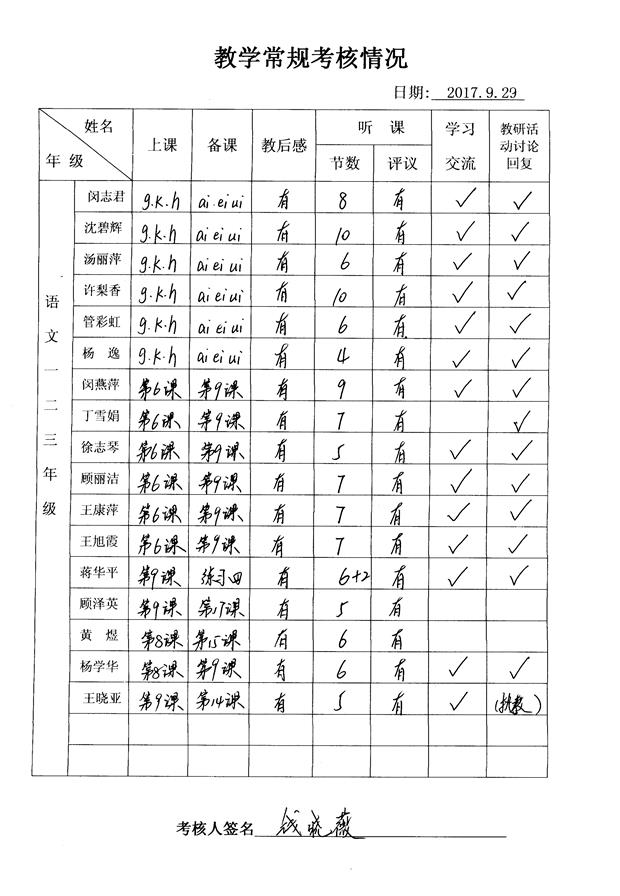 教学常规考核情况
日期: 2017.9.29
姓名 年级 上课 备课 教后感 听课 节数 评议 学习交流 教研活动讨论回复
语文一二三年级
闵志君 g.k.h ai ei ui 有 8 有 ✓ ✓
沈碧辉 g.k.h ai ei ui 有 10 有 ✓ ✓
汤丽萍 g.k.h ai ei ui 有 6 有 ✓ ✓
许梨香 g.k.h ai ei ui 有 10 有 ✓ ✓
管彩虹 g.k.h ai ei ui 有 6 有 ✓ ✓
杨逸 g.k.h ai ei ui 有 4 有 ✓ ✓
闵燕萍 第6课 第9课 有 9 有 ✓ ✓
丁雪娟 第6课 第9课 有 7 有 ✓
徐志琴 第6课 第9课 有 5 有 ✓ ✓
顾丽洁 第6课 第9课 有 7 有 ✓ ✓
王康萍 第6课 第9课 有 7 有 ✓ ✓
王旭霞 第6课 第9课 有 7 有 ✓ ✓
蒋华平 第9课 练习四 有 6+2 有 ✓ ✓
顾泽英 第9课 第17课 有 5 有
黄煜 第8课 第15课 有 6 有
杨学华 第8课 第9课 有 6 有 ✓ ✓
王晓亚 第9课 第14课 有 5 有 ✓
考核人签名 钱晓薇